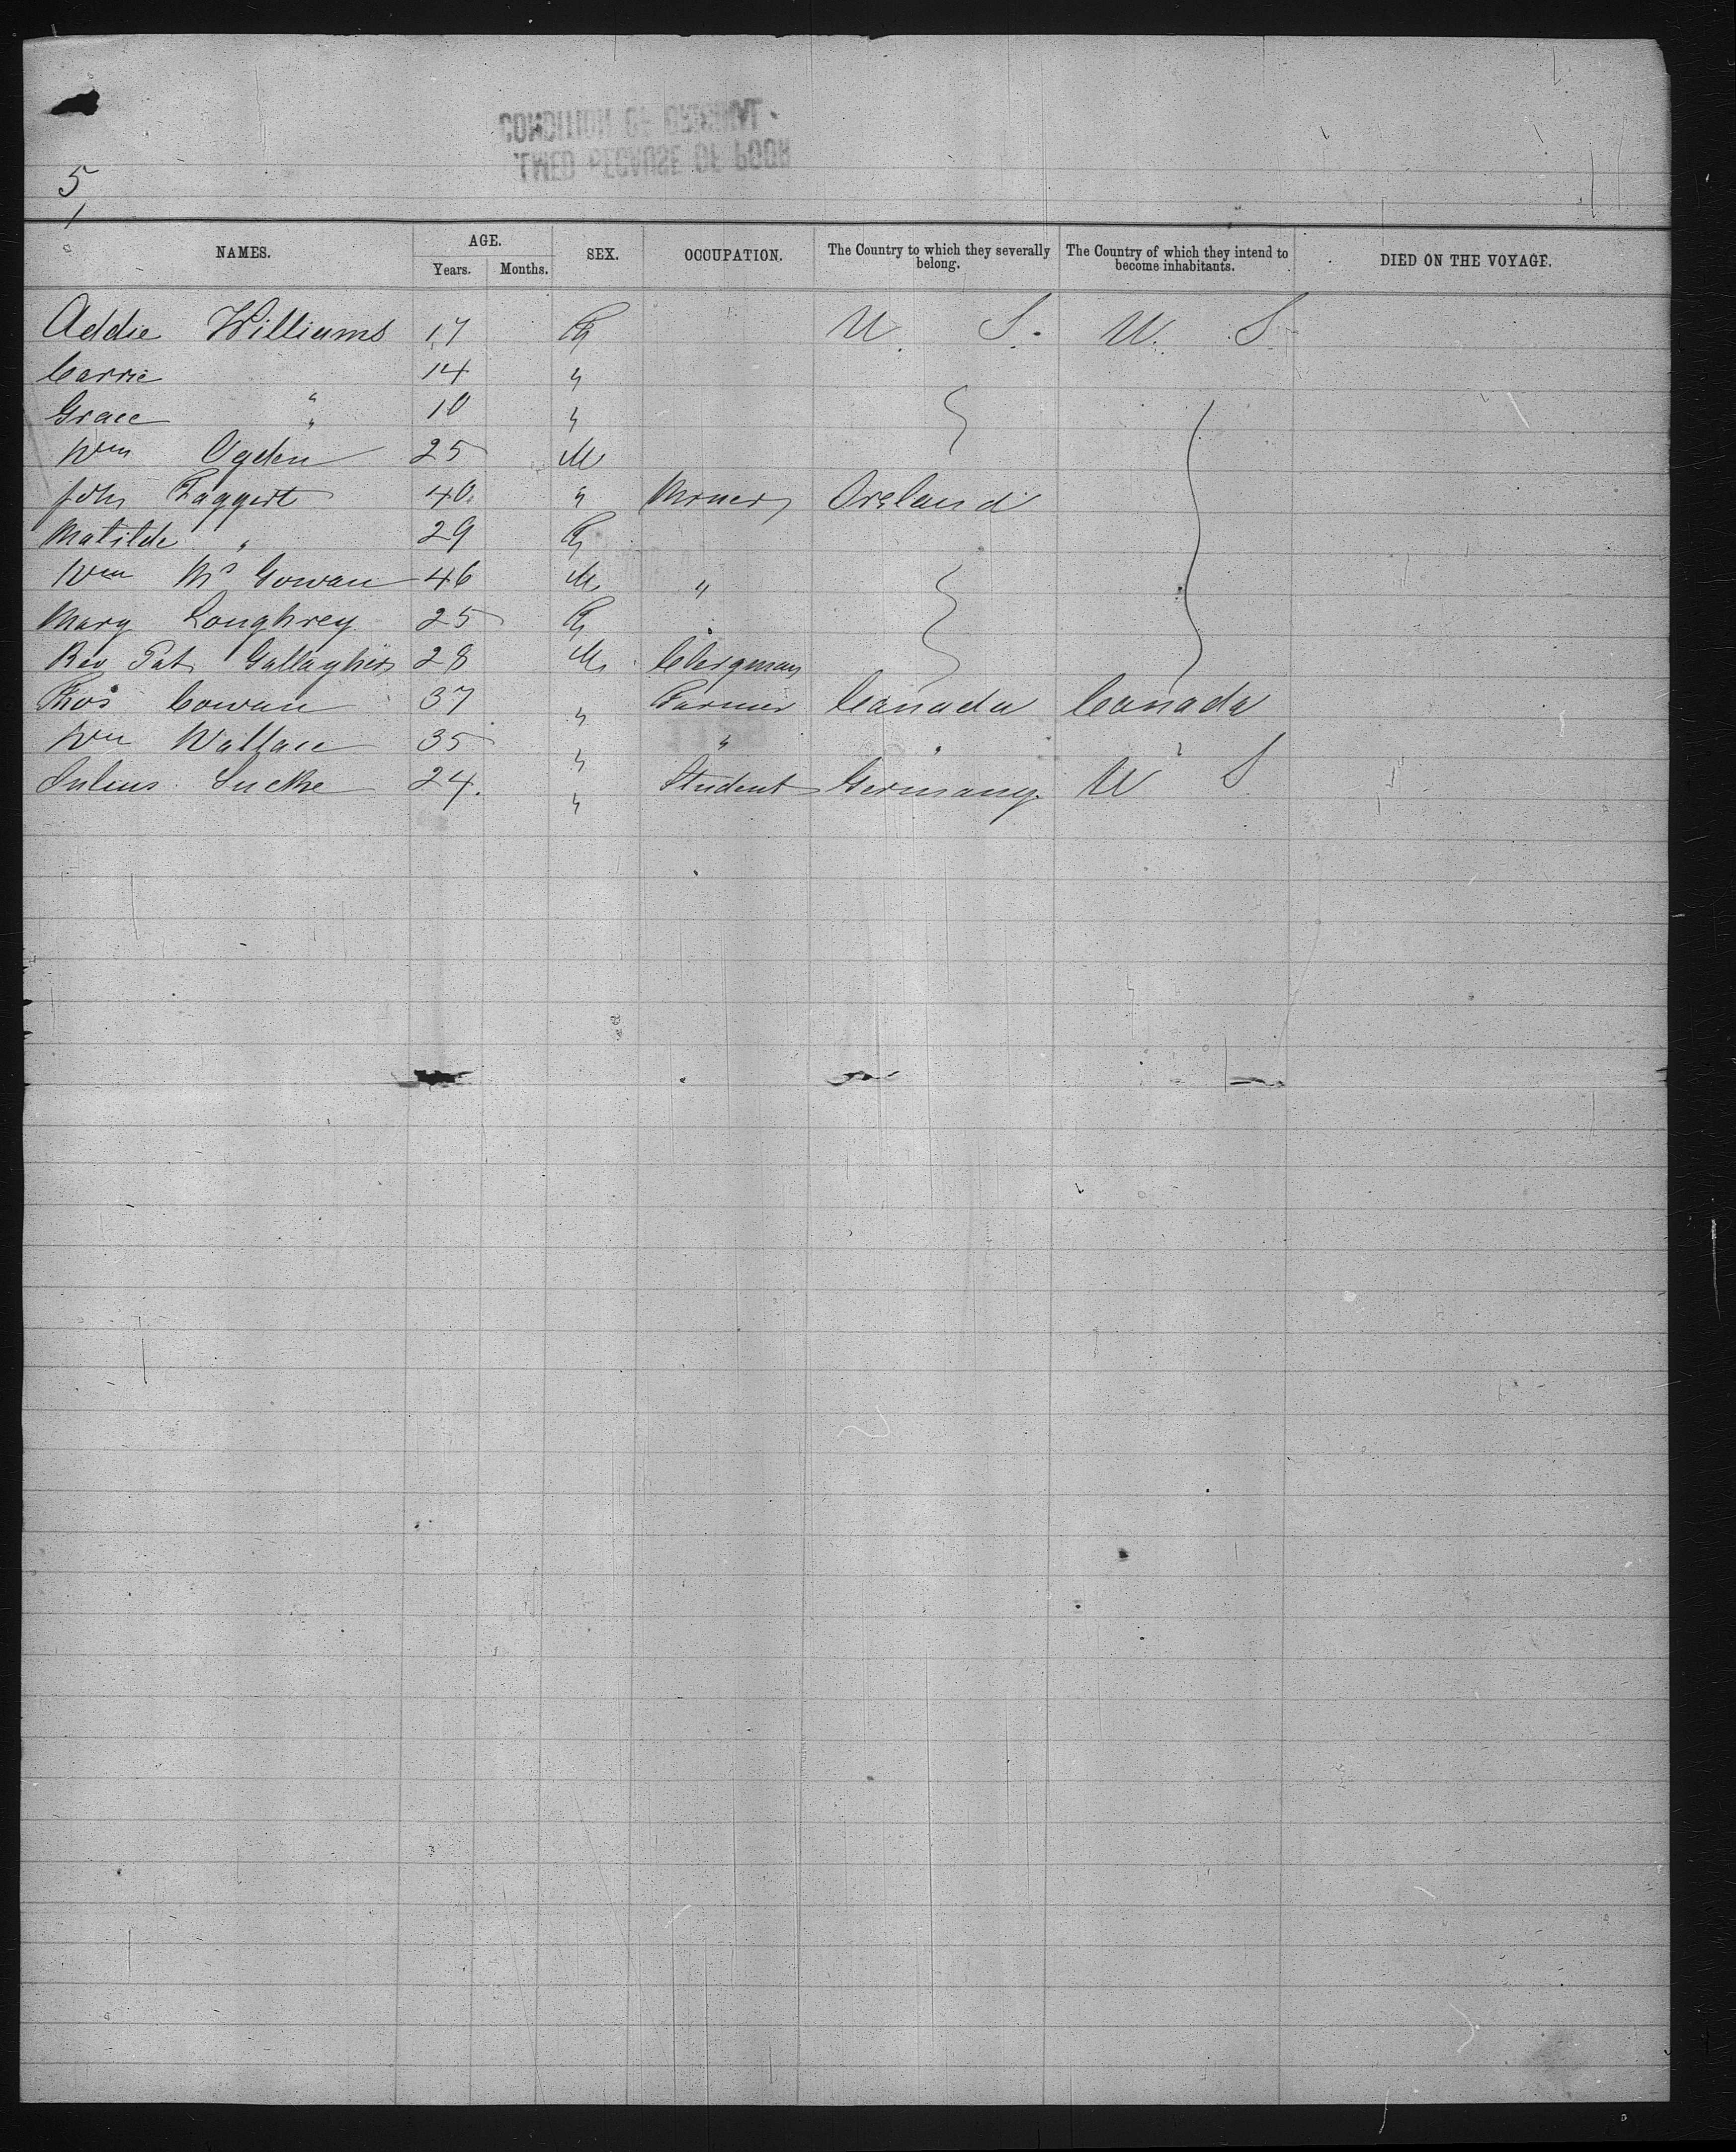 CONDITION OF ORIGINAL
BECAUSE OF POOR
5
NAMES. AGE. SEX. OCCUPATION. The Country to which they severally belong. The Country of which they intend to become inhabitants. DIED ON THE VOYAGE.
Years. Months.
Addie Williams 17 F U. S. U. S
Carrie " 14 "
Grace " 10 "
Wm Ogden 25 M
John Taggert 40 " Miner Ireland
Matilde " 29 F
Wm Mc Gowan 46 M "
Mary Loughrey 25 F
Rev Pat Gallagher 28 M Clergman
Thos Cowan 37 " Farmer Canada Canada
Wm Wallace 35 " " " "
Julius 24. " Student Germany. U S